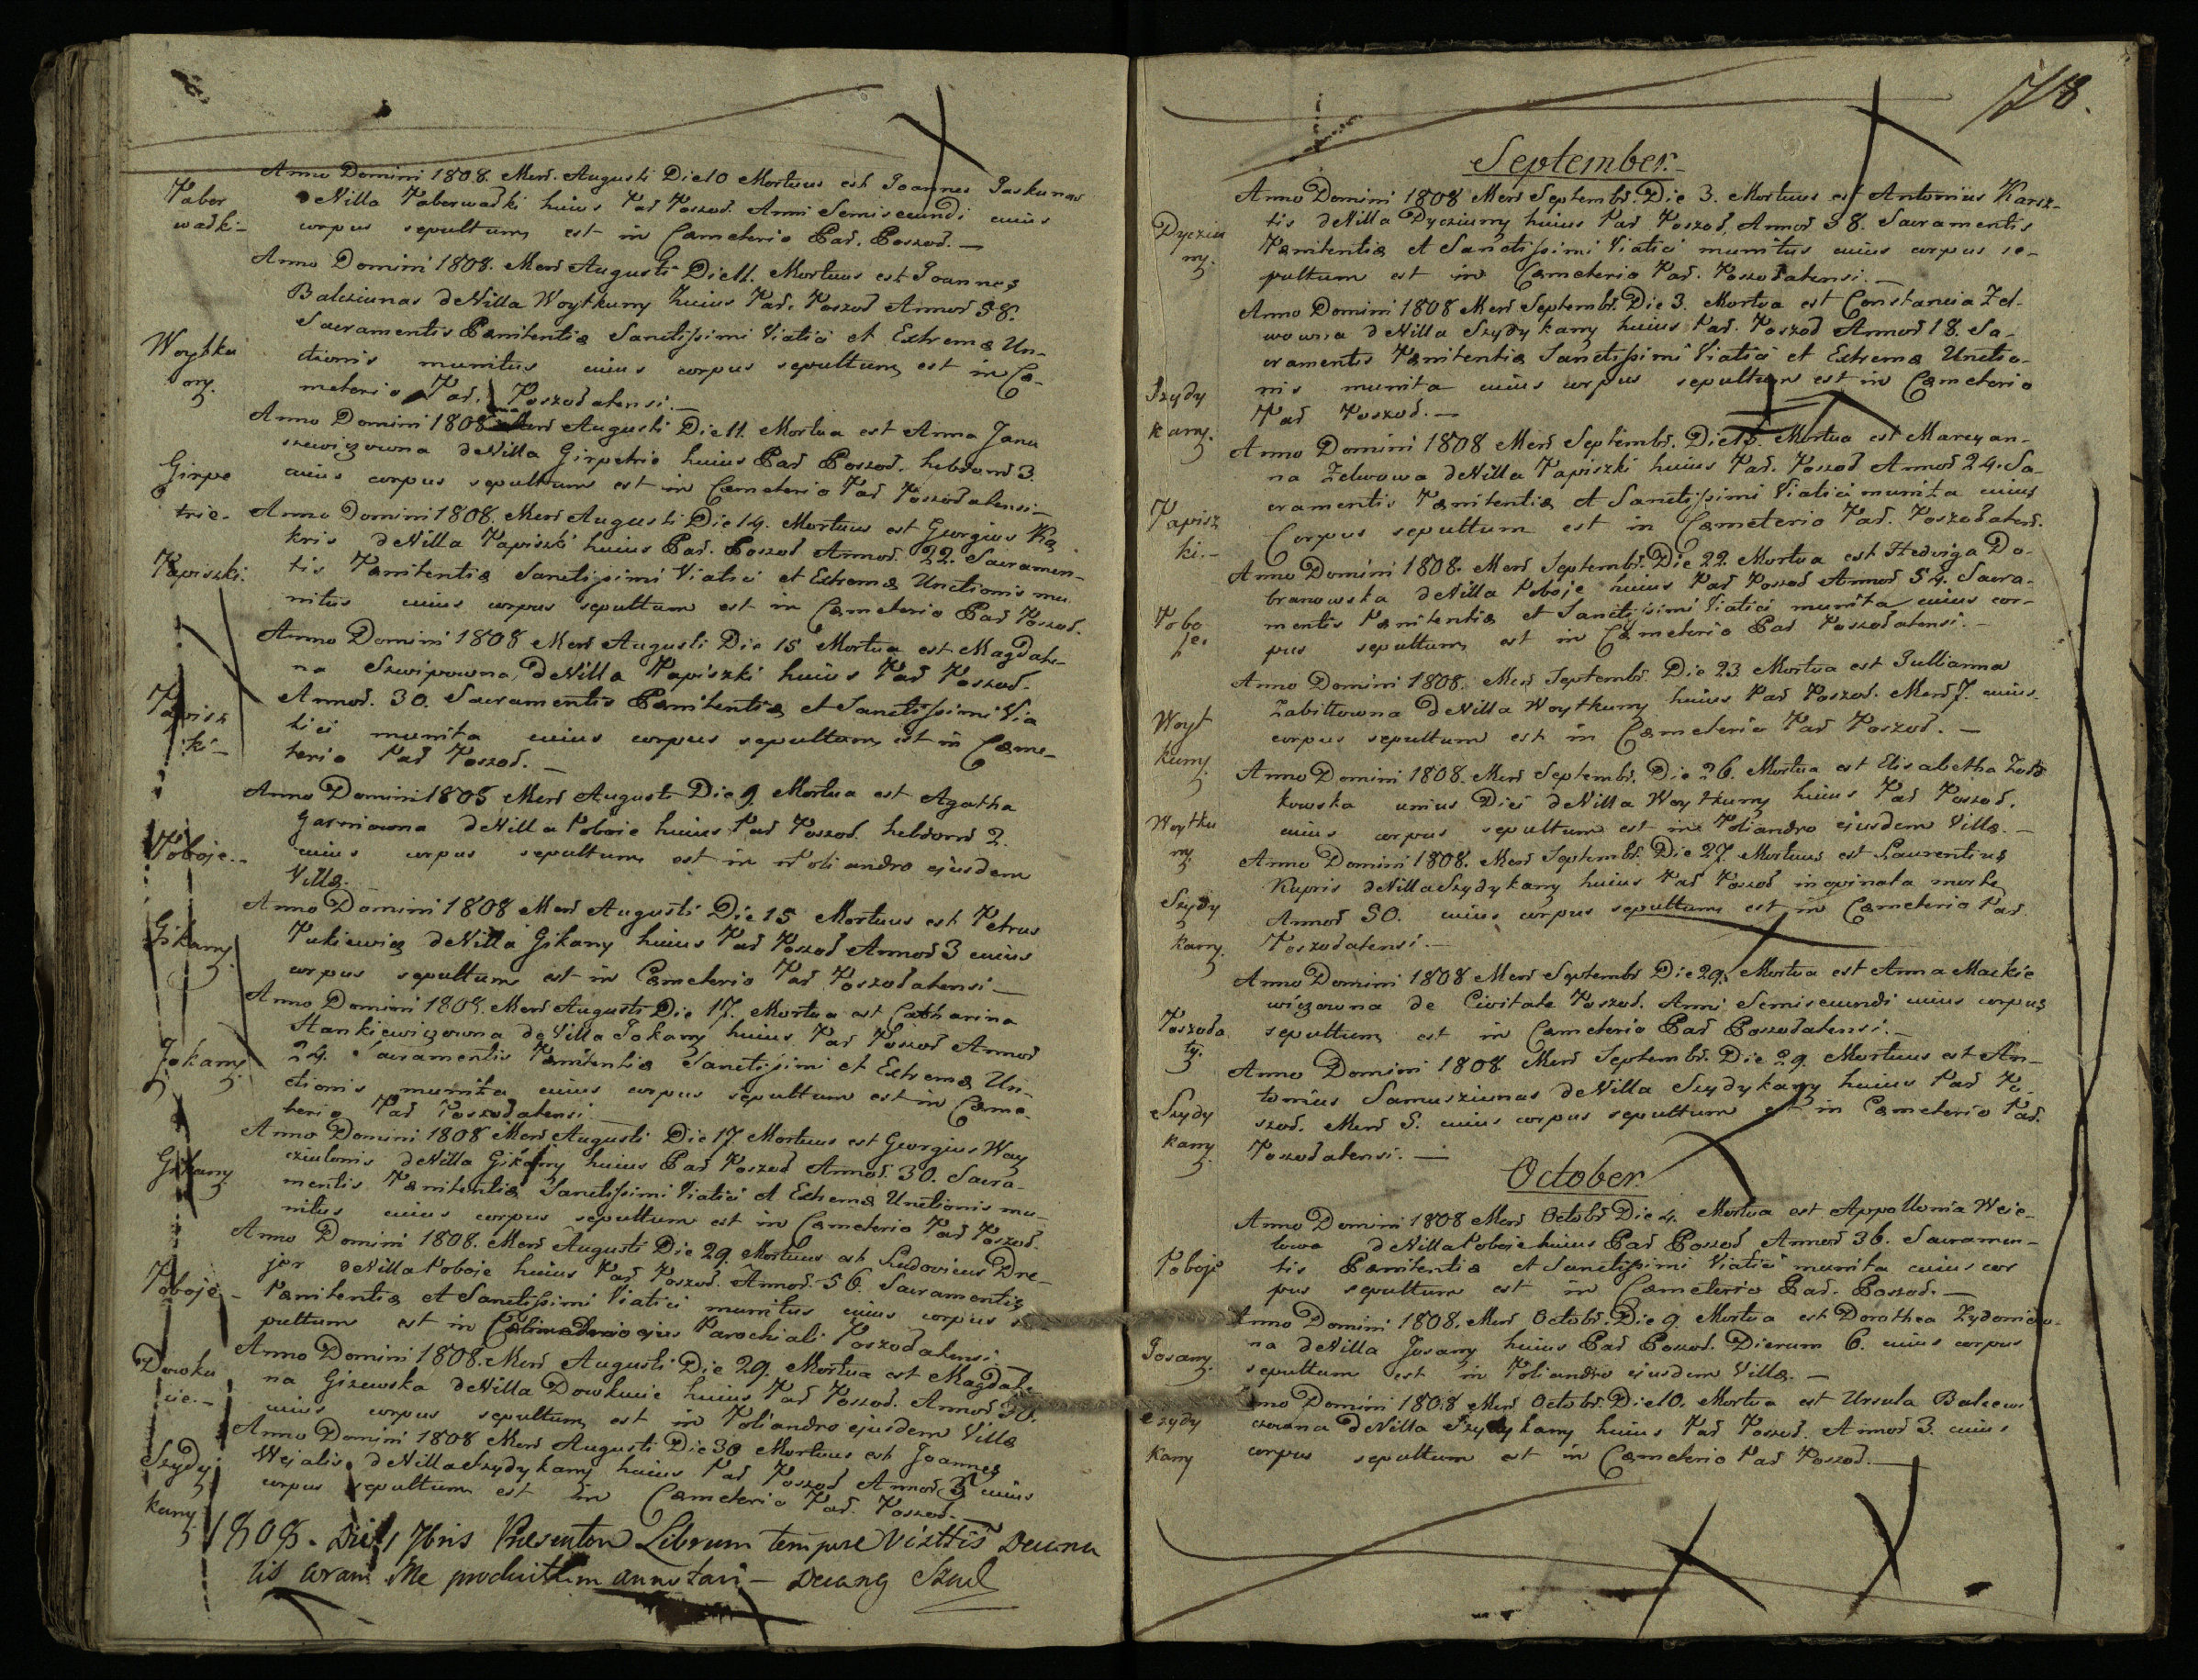 Anno Domini 1808. Mens. Augusti Die 10 Mortuus est Joannes Paskunas
Paber
wałki -
de Villa Paberwałki huius Par Poszoł. Anni Semisecundi cuius
corpus sepultum est in Cæmeterio Par. Poszoł. —
Anno Domini 1808. Mens Augusti Die 11. Mortuus est Joannes
Balcziunas de Villa Woytkuny huius Par. Poszoł Annor 58.
Sacramentis Pænitentiæ Sanctissimi Viatici et Extremæ Un-
Woytku
ny.
ctionis munitus cuius corpus sepultum est in Cæ-
meterio Par. Poszołatensi. —
Anno Domini 1808 Mens Augusti Die 11. Mortua est Anna Janu
szewiczowna de Villa Girpetrie huius Par Poszoł. hebdom 3.
Girpe
trie.
cuius corpus sepultum est in Cæmeterio Par Poszołatensi —
Anno Domini 1808. Mens Augusti Die 14. Mortuus est Georgius Ku
kris de Villa Papiszki huius Par. Poszoł Annor. 22. Sacramen-
Papiszki.
tis Pænitentiæ Sanctissimi Viatici et Extremæ Unctionis mu
nitus cuius corpus sepultum est in Cæmeterio Par Poszoł.
Anno Domini 1808 Mens Augusti Die 15 Mortua est Magdale-
na Szwipowna de Villa Papiszki huius Par Poszoł.
Papisz
ki -
Annor. 30. Sacramentis Pænitentiæ et Sanctissimi Via
tici munita cuius corpus sepultum est in Cæme-
terio Par Poszoł. —
Anno Domini 1808 Mens Augusti Die 9. Mortua est Agatha
Garniowna de Villa Poboie huius Par Poszoł. hebdom 2.
Poboje. -
cuius corpus sepultum est in Poliandro ejusdem
Villæ. —
Anno Domini 1808 Mens Augusti Die 15 Mortuus est Petrus
Gikany.
Pukiewicz de Villa Gikany huius Par Poszoł Annor 3 cuius
corpus sepultum est in Cæmeterio Par Poszołatensi —
Anno Domini 1808. Mens Augusti Die 17. Mortua est Catharina
Stankiewiczowna de Villa Jokany huius Par Poszoł Annor
Jokany.
24. Sacramentis Pænitentiæ Sanctissimi et Extremæ Un-
ctionis munita cuius corpus sepultum est in Cæme-
terio Par Poszołatensi —
Anno Domini 1808 Mens Augusti Die 17 Mortuus est Georgius Way
cziulonis de Villa Gikany huius Par Poszoł Annor. 30. Sacra-
Gikany
mentis Pænitentiæ Sanctissimi Viatici et Extremæ Unctionis mu-
nitus cuius corpus sepultum est in Cæmeterio Par Poszoł.
Anno Domini 1808. Mens Augusti Die 29. Mortuus est Ludovicus Dre-
jer de Villa Poboje huius Par Poszoł. Annor. 56. Sacramentis
Poboje. -
Pænitentiæ et Sanctissimi Viatici munitus cuius corpus se-
pultum est in Parochiali Poszołatensi.
Anno Domini 1808. Mens Augusti Die 29. Mortua est Magdale-
Dowku
cie. -
na Gizewska de Villa Dowkucie huius Par Poszoł. Annor 30.
cuius corpus sepultum est in Poliandro ejusdem Villæ
Anno Domini 1808 Mens Augusti Die 30 Mortuus est Joannes
Szydy
kany
Wejalis de Villa Szydykany huius Par Poszoł Annor 3 cuius
corpus sepultum est in Cæmeterio Par. Poszoł. —
1808. Die 7bris Præsentem Librum tempore Visittis Decana
lis coram Me productum annotavi —
78.
September.
Anno Domini 1808 Mens Septembr. Die 3. Mortuus est Antonius Karsz-
Dyrziu
ny.
tis de Villa Dyrziuny huius Par Poszoł. Annor 38. Sacramentis
Pænitentiæ et Sanctissimi Viatici munitus cuius corpus se-
pultum est in Cæmeterio Par. Poszołatensi. —
Anno Domini 1808 Mens Septembr. Die 3. Mortua est Constancia Zel-
wowna de Villa Szydykany huius Par. Poszoł Annor 18. Sa-
cramentis Pænitentiæ Sanctissimi Viatici et Extremæ Unctio-
Szydy
kany.
nis munita cuius corpus sepultum est in Cæmeterio
Par Poszoł. —
Anno Domini 1808 Mens Septembr. Die 15. Mortua est Marcyan-
na Zelwowa de Villa Papiszki huius Par. Poszoł Annor 24. Sa-
Papisz
ki. -
cramentis Pænitentiæ et Sanctissimi Viatici munita cuius
Corpus sepultum est in Cæmeterio Par. Poszołatens.
Anno Domini 1808. Mens Septembr. Die 22. Mortua est Hedviga Do-
browowska de Villa Poboje huius Par Poszoł Annor 54. Sacra-
Pobo
je.
mentis Pænitentiæ et Sanctissimi Viatici munita cuius cor-
pus sepultum est in Cæmeterio Par Poszołatensi. —
Anno Domini 1808. Mens Septembr. Die 23 Mortua est Julianna
Zabiłłowna de Villa Woytkuny huius Par Poszoł. Mens 7. cuius
Woyt
kuny
corpus sepultum est in Cæmeterio Par Poszoł. —
Anno Domini 1808. Mens Septembr. Die 26. Mortua est Elisabetha
kowska unius Diei de Villa Woytkuny huius Par Poszoł.
Woytku
ny.
cuius corpus sepultum est in Poliandro ejusdem Villæ. —
Anno Domini 1808. Mens Septembr. Die 27. Mortuus est Laurentius
Kupris de Villa Szydykany huius Par Poszoł inopinata morte
Szydy
kany.
Annor 50. cuius corpus sepultum est in Cæmeterio Par
Poszołatensi. —
Anno Domini 1808 Mens Septembr Die 29. Mortua est Anna Mackie
wiczowna de Civitate Poszoł. Anni Semisecundi cuius corpus
Poszoła
ty.
sepultum est in Cæmeterio Par Poszołatensi. —
Anno Domini 1808 Mens Septembr. Die 29. Mortuus est An-
tonius Samusziunas de Villa Szydykany huius Par Po-
Szydy
kany.
szoł. Mens 5. cuius corpus sepultum est in Cæmeterio Par.
Poszołatensi. —
October
Anno Domini 1808 Mens Octobr Die 4. Mortua est Appollonia Weie-
lowa de Villa Poboje huius Par Poszoł Annor 36. Sacramen-
Poboje
tis Pænitentiæ et Sanctissimi Viatici munita cuius cor
pus sepultum est in Cæmeterio Par. Poszoł. —
Anno Domini 1808. Mens Octobr. Die 9. Mortua est Dorothea
na de Villa Josany huius Par Poszoł. Dierum 6. cuius corpus
Josany.
sepultum est in Poliandro ejusdem Villæ. —
Anno Domini 1808 Mens Octobr. Die 10. Mortua est Ursula Balcewi
Szydy
kany
czowna de Villa Szydykany huius Par Poszoł. Annor 3. cuius
corpus sepultum est in Cæmeterio Par Poszoł. —